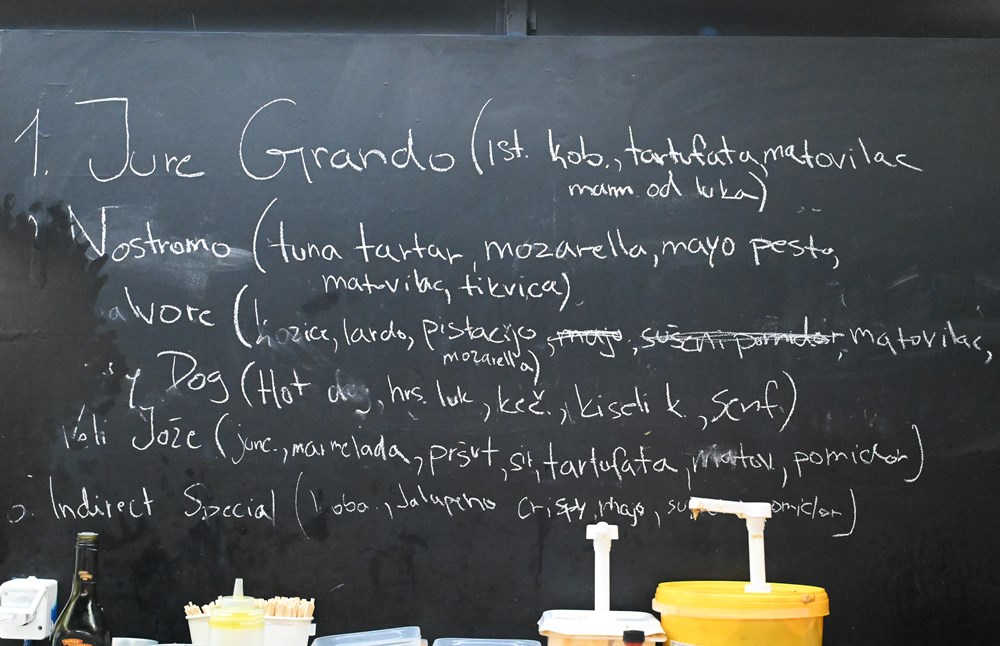 1. Jure Grando (ist. kob., tartufata, matovilac
marm. od luka)
Nostromo (tuna tartar, mozarella, mayo pesto,
matovilac, tikvica)
avore (kozice, lardo, pistacijo, majo, sušeni pomidor, matovilac,
mozarella)
y Dog (Hot dog, hrs. luk, keč., kiseli k., senf)
Veli Jože (junc., marmelada, pršut, sir, tartufata, matov, pomidor)
Indirect Special (koba., Jalapeno crispy, majo, pomidor)